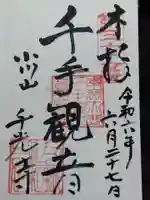 奉拝
令和六年
六月二十七日
千手観音
千光寺